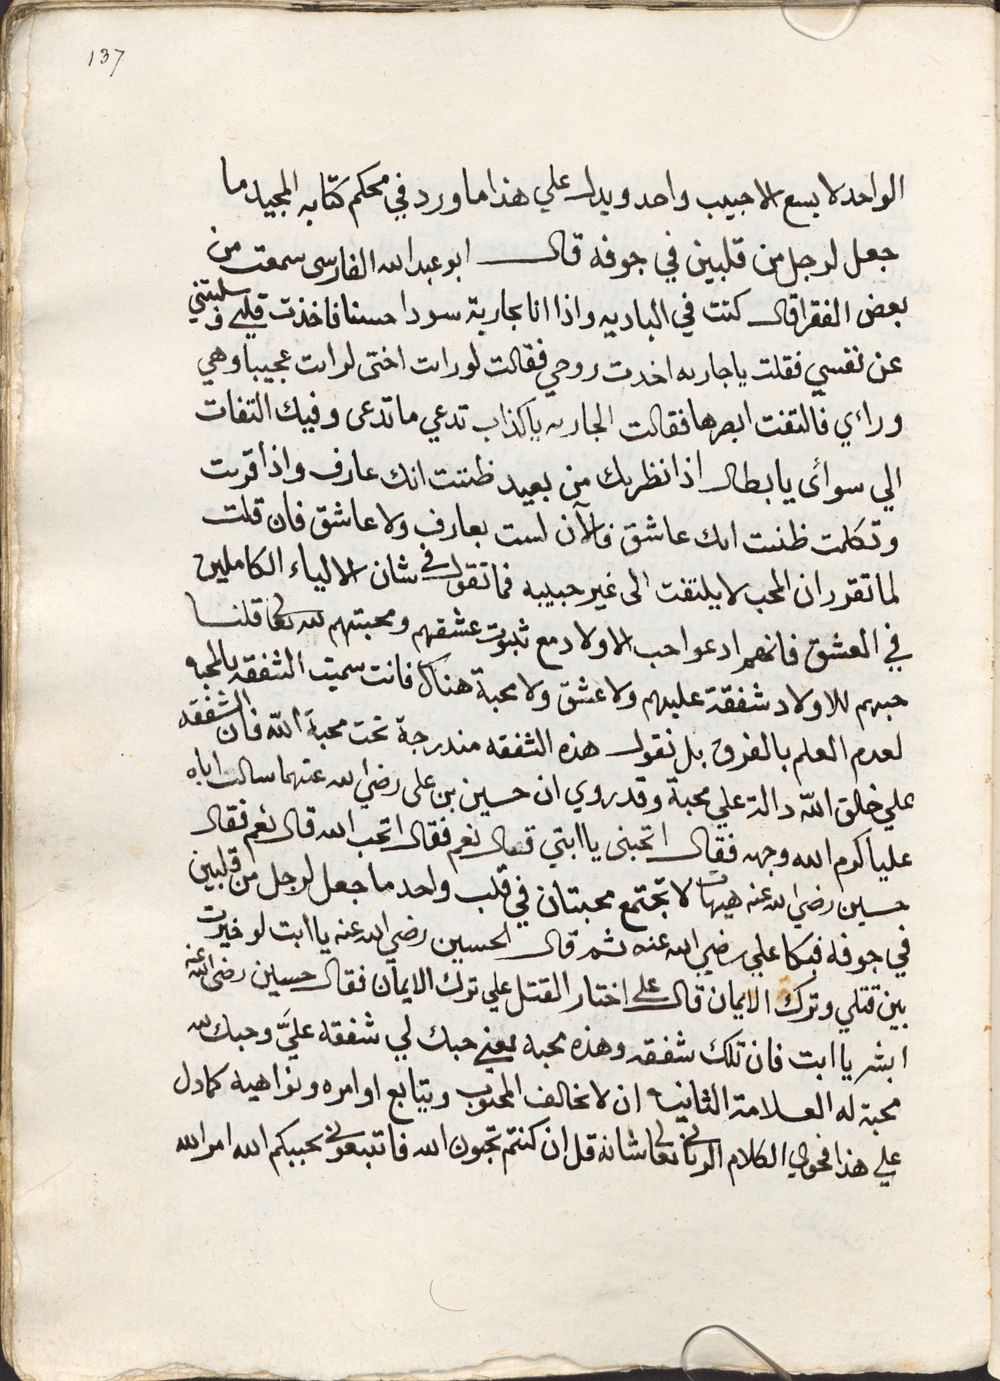 137
الواحد لا يسع الا حبيب واحد ويدل علي هذا ما ورد في محكم كتابه المجيد ما
جعل لرجل من قلبين في جوفه قال ابو عبد الله الفارسى سمعت من
بعض الفقرا قال كنت في الباديه واذا انا بجارية سودا حسنا فاخذت قلبي وسلبتني
عن نفسي فقلت يا جاريه اخدت روحي فقالت لو رات اختى لرات عجيبا وهي
وراءي فالتفت ابصرها فقالت الجاريه يا كذاب تدعي ما تدعى وفيك التفات
الي سوائ يا بطال اذا نظر بك من بعيد ظننت انك عارف واذا قربت
وتكلمت ظنت انك عاشق فالآن لست بعارف ولا عاشق فان قلت
لما تقرر ان المحب لا يلتفت الى غير حبيبه فما تقول في شان الالياء الكاملين
في العشق فانهم ادعوا حب الاولاد مع ثبوت عشقهم ومحبتهم لله تعالى قلنا
حبهم للاولاد شفقة عليهم ولا عشق ولا محبة هناك فانت سميت الشفقه بالمحبه
لعدم العلم بالفرق بل نقول هذه الشفقه مندرجة تحت محبة الله فان الشفقه
علي خلق الله دالة علي محبة وقد روي ان حسين بن على رضي الله عنهما سالت اباه
عليا كرم الله وجهه فقال اتحبنى يا ابتي قال نعم فقال اتحب الله قال نعم فقال
حسين رضي الله عنه هيهات لا تجتمع محبتان في قلب واحد ما جعل لرجل من قلبين
في جوفه فبكا علي رضي الله عنه ثم قال الحسين رضي الله عنه يا ابت لو خيرت
بين قتلي وترك الايمان قال علي اختار القتل علي ترك الايمان فقال حسين رضى الله عنه
ابشر يا ابت فان تلك شفقه وهذه محبه يعني حبك لي شفقة عليَّ وحبك لله
محبة له العلامة الثانيه ان لا يخالف المحبوب ويتابع اوامره ونواهيه كما دل
علي هذا فحوي الكلام الرباني تعالى شانه قل ان كنتم تحبون الله فاتبعوني يحببكم الله امر الله